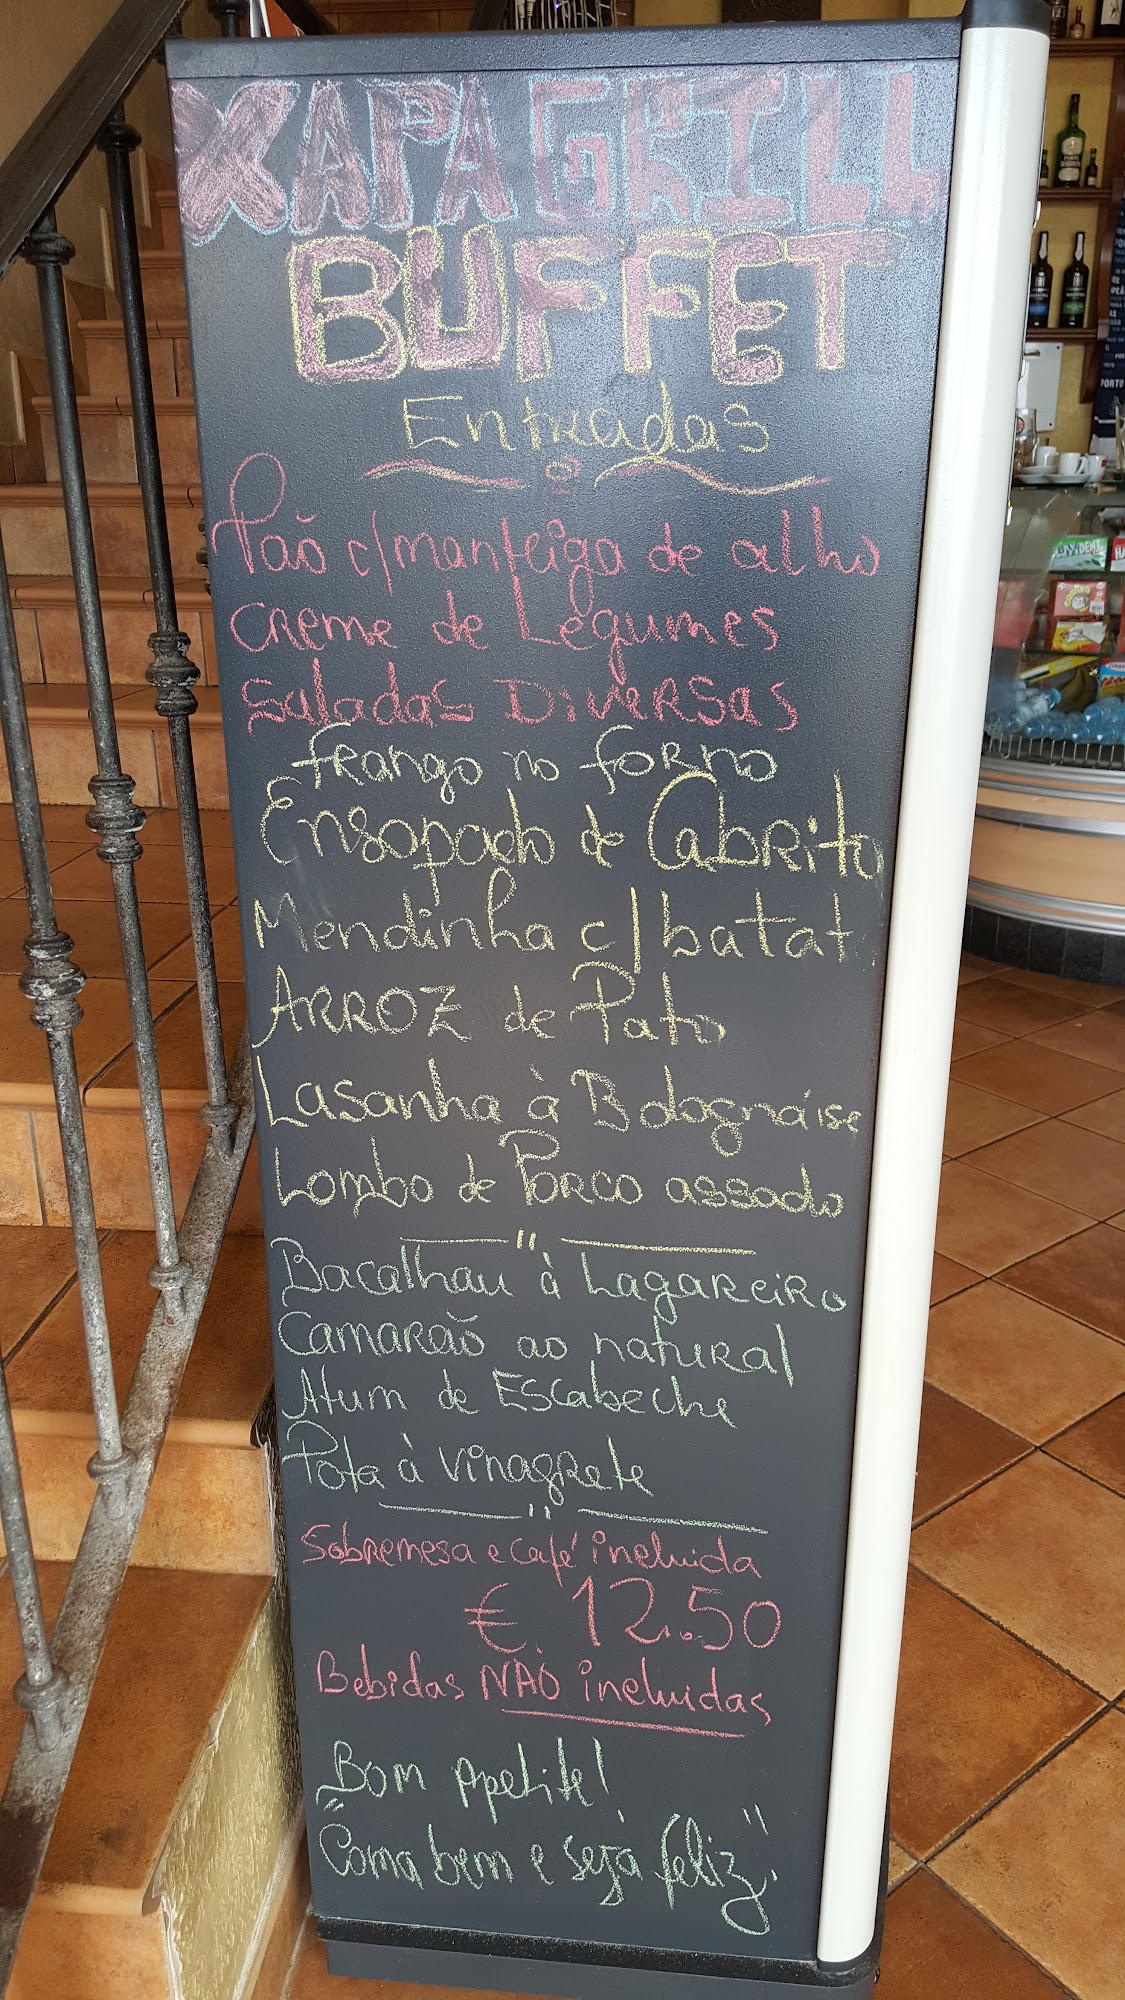 XAPA GRILL
BUFFET
Entradas
Pão c/manteiga de alho
creme de Legumes
Saladas Diversas
frango no forno
Ensopado de Cabrito
Mendinha c/batat
ARROZ de Pato
Lasanha à Bolognáise
Lombo de Porco assado
Bacalhau à Lagareiro
Camarão ao natural
Atum de Escabeche
Pota à vinagrete
Sobremesa e café incluida
€. 12.50
Bebidas NÃO incluidas
Bom Apetite!
"Coma bem e seja feliz."
PORTO